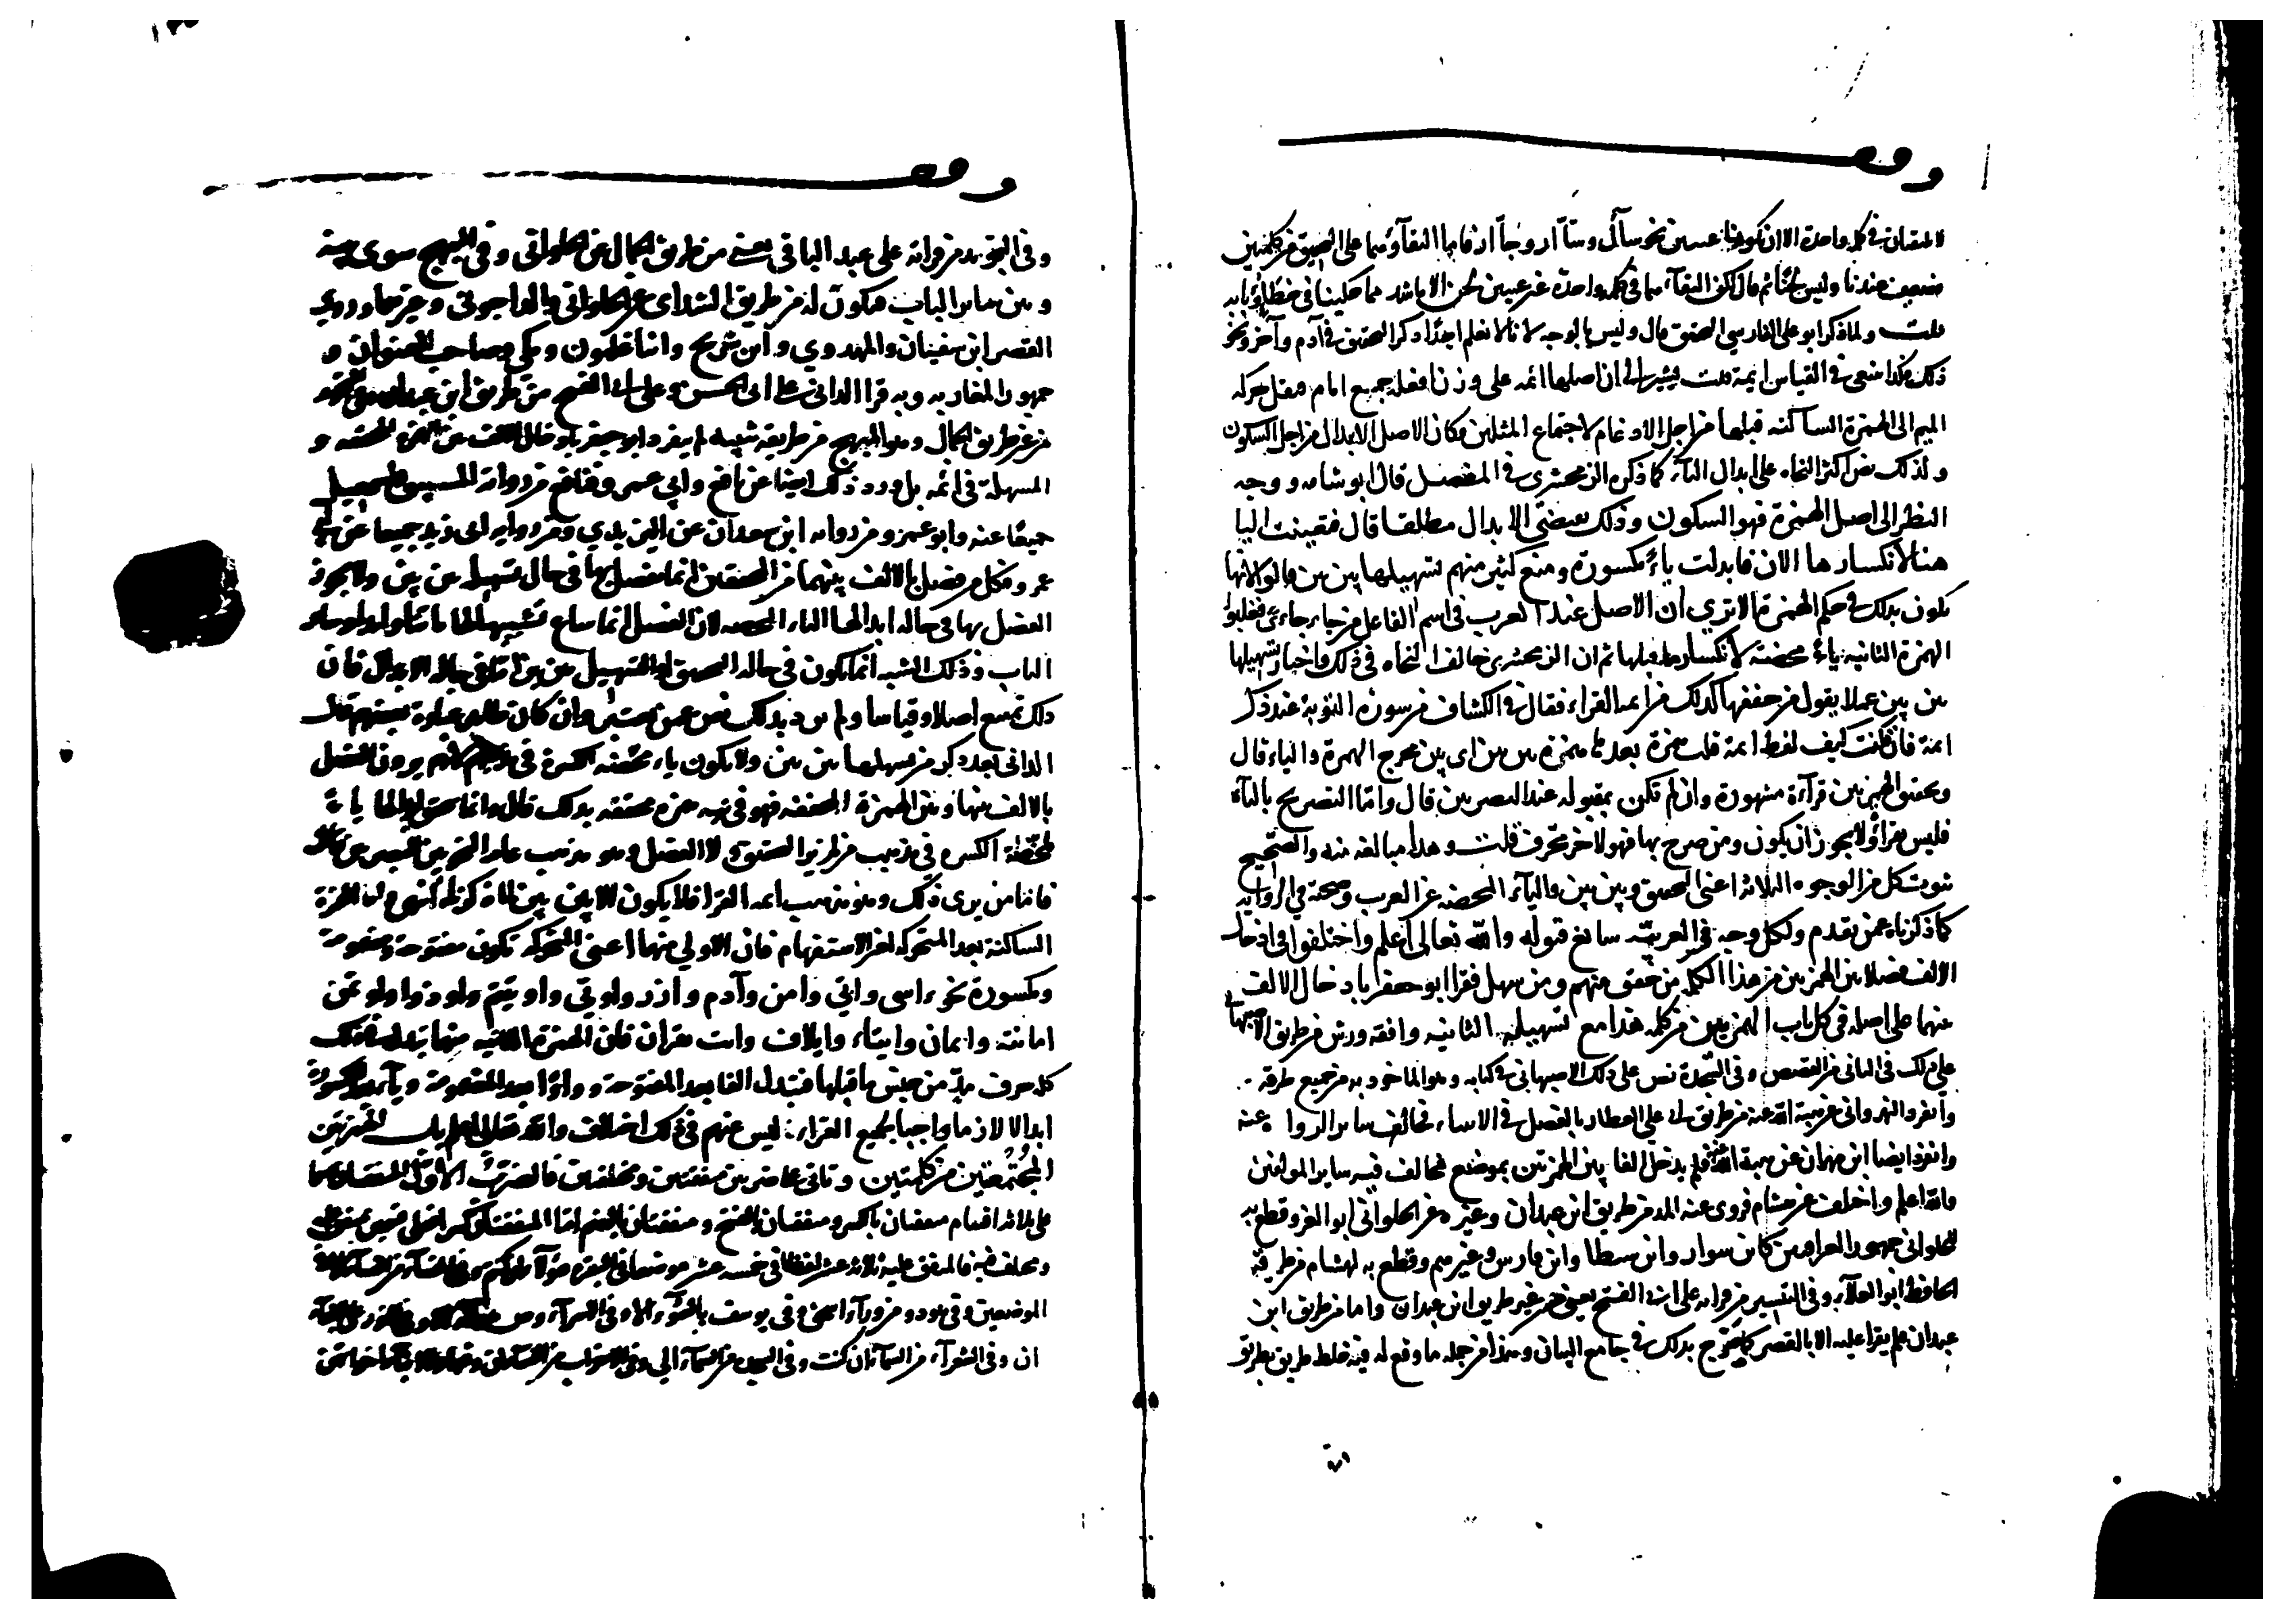 وقف
تلتقيان في كلمة واحدة الا ان تكونا عينين نحو سأال وسأار وجأار فاما التقاؤهما على التحقيق من كلمتين
ضعيف عندنا وليس لحنا ثم قال لكن التقاءهما في كلمة واحدة غير عينين لحن الا ما شذ مما حكيناه في خطاؤ بابه
قلت ولما ذكر ابو علي الفارسي التحقيق قال وليس بالوجه لانا لا نعلم احدا ذكر التحقيق في آدم وآخر ونحو
ذلك فكذا ينبغي في القياس ايمة قلت يشير الى ان اصلها ائمه على وزن افعلة جمع امام فنقل حركة
الميم الى الهمزة الساكنة قبلها من اجل الادغام لاجتماع المثلين فكان الاصل الابدال من اجل السكون
ولذلك نص اكثر النحاه على ابدال الياء كما ذكره الزمخشري في المفصل قال ابو شامه ووجه
النظر الى اصل الهمزة فهو السكون وذلك يقتضي الابدال مطلقا قال فتعينت اليا
هنا لانكسارها الان فابدلت ياء مكسورة ومنع كثير منهم تسهيلها بين بين قالوا لانها
تكون بذلك في حكم الهمزة الا ترى ان الاصل عند العرب في اسم الفاعل من جاء جاءئ فقلبوا
الهمزة الثانيه ياء محضة لانكسار ما قبلها ثم ان الزمخشري خالف النحاه في ذلك واختار تسهيلها
بين بين عملا بقول من حققها كذلك من ائمة القراء فقال في الكشاف من سورة التوبة عند ذكر
ائمة فان قلت كيف لفظ ائمة قلت همزة بعدها همزة بين بين اي بين مخرج الهمزة والياء قال
وتحقيق الهمزتين قراءة مشهورة وان لم تكن بمقبوله عند البصريين قال واما التصريح بالياء
فليس بقراءة ولا يجوز ان يكون ومن صرح بها فهو لاحن محرف قلت وهذا مبالغه منه والصحيح
ثبوت كل من الوجوه الثلاثة اعني التحقيق وبين بين والياء المحضه عن العرب وصحته في الرواية
كما ذكرناه عمن تقدم ولكل وجه في العربية سائغ قبوله والله تعالى اعلم واختلفوا في ادخال
الالف فصلا بين الهمزتين من هذا الكلمة من حقق منهم ومن سهل فقرا ابو جعفر بادخال الالف
بينهما على اصله في كل باب الهمزتين من كلمه هذا مع تسهيله الثانيه وافقه ورش من طريق الاصبهاني
على ذلك في الثاني من القصص وفي السجدة نص على ذلك الاصبهاني في كتابه وهو الماخوذ به من جميع طرقه
وانفرد النهرواني عن هبة الله عنه من طريق ابي علي العطار بالفصل في الانبياء فخالف سائر الرواة عنه
وانفرد ايضا ابن مهران عن هبة الله فلم يدخل الفا بين الهمزتين بموضع فخالف فيه ساير المؤلفين
والله اعلم واختلف عن هشام فروى عنه المد من طريق ابن عبدان وغيره عن الحلواني ابو العز وقطع به
للحلواني جمهور العراقيين كابن سوار وابن شيطا وابن فارس وغيرهم وقطع به لهشام من طرقه
الحافظ ابو العلاء وفي التيسير من قراءته على ابي الفتح يعني من غير طريق ابن عبدان واما من طريق ابن
عبدان فلم يقرا عليه الا بالقصر كما صرح بذلك في جامع البيان وهذا من جمله ما وقع له فيه خلط طريق بطريق
وقف
وفي التجويد من قراءته على عبد الباقي يعني من طريق الجمال عن الحلواني وفي المبهج سوى بينه
وبين سائر الباب فيكون له من طريق الشذاي عن الحلواني والداجوني وغيرهما وروى
القصر ابن سفيان والمهدوي وابن شريح وابنا غلبون ومكي وصاحب العنوان و
جمهور المغاربه وبه قرا الداني على ابي الحسن وعلى ابي الفتح من طريق ابن عبدان
من غير طريق الجمال وهو في المبهج من طريقه تنبيه لم ينفرد ابو جعفر بادخال الالف بين الهمزة المحققه و
المسهلة في ائمة بل ورد ذلك ايضا عن نافع وابي عمرو فنافع من رواية المسيبي واسمعيل
جميعا عنه وابو عمرو من رواية ابن سعدان عن اليزيدي ومن رواية ابي زيد جميعا عن ابي
عمرو فكل من فصل بالالف بينهما من المحققين انما يفصل بها في حال تسهيلها بين بين ولا يجوز
الفصل بها في حالة ابدالها الياء المحضه لان الفصل انما ساغ تشبيها لها
الباب وذلك الشبه انما يكون في حالة التحقيق او التسهيل بين بين اما في حالة الابدال فان
ذلك يمتنع اصلا وقياسا ولم يرد بذلك نص عن من يعتبر وان كان ظاهر عبارة بعضهم قال
الداني بعد ذكر من يسهلها بين بين ولا يكون ياء محضه الكسرة في مذهبهم لانهم يرون الفصل
بالالف بينها وبين الهمزة المحققه فهو في نية همزة محققه بذلك قال وانما يحقق ابدالها ياء
محضة الكسره في مذهب من لم ير التحقيق ولا الفصل وهو مذهب عامة النحويين البصريين قال
فاما من يرى ذلك وهو مذهب ائمة القرا فلا يكون الا بين بين لما ذكرناه انتهى واما الهمزة
الساكنة بعد المتحركه لغير الاستفهام فان الاولى منهما اعني المتحركه تكون مفتوحة ومضمومة
ومكسورة نحو اسى واتى وامن وآدم وآزر واوتي واوتيتم واوذوا واوتمن
امانته وايمان وايتاء وايلاف وائت بقران فان الهمزة الثانيه منها تبدل في ذلك
كله حرف مد من جنس ما قبلها فتبدل الفا بعد المفتوحة وواوا بعد المضمومة وياء بعد المكسورة
ابدالا لازما واجبا لجميع القراء ليس عنهم في ذلك اختلاف والله تعالى اعلم باب الهمزتين
المجتمعتين من كلمتين وتاتي على ضربين متفقتين ومختلفتين فالضرب الاول المتفقتان وهما
على ثلاثة اقسام متفقتان بالكسر ومتفقتان بالفتح ومتفقتان بالضم اما المتفقتان كسرا فعلى قسمين متفق عليه
ومختلف فيه فالمتفق عليه ثلاثة عشر لفظا في خمسه عشر موضعا في البقرة هؤلاء ان كنتم وفي النساء من النساء الا في
الموضعين وفي هود ومن وراء اسحق وفي يوسف بالسوء الا وفي الاسراء وص هؤلاء الا وفي النور على البغاء
ان وفي الشعراء من السماء ان كنت وفي السجدة من السماء الى وفي الاحزاب من النساء ان